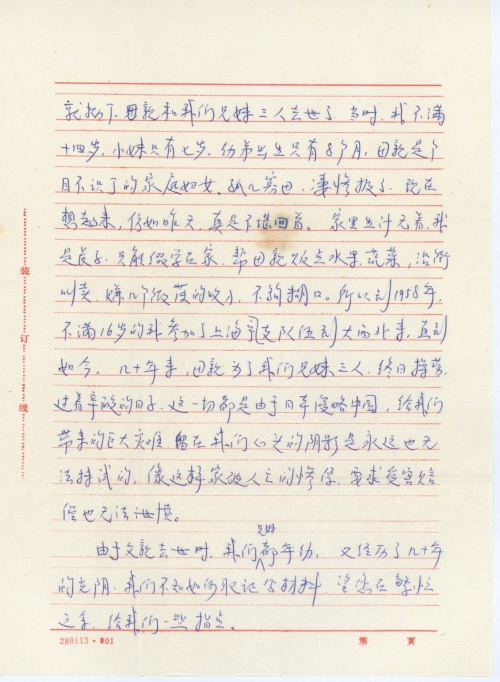 就抛下母亲和我们兄妹三人去世了。当时,我不满
十四岁,小妹只有七岁,幼弟出生只有8个月,母亲是个
目不识丁的家庭妇女。孤儿寡母,凄惨极了。现在
想起来,仿如昨天,真是不堪回首。家里生计无着,我
是长子,只能辍学在家,帮母亲贩点水果、蔬菜,沿街
叫卖,赚几个微薄的收入,不够糊口。所以到1958年,
不满16岁的我参加了上海支队伍到大西北来,直到
如今。几十年来,母亲为了我们兄妹三人,终日操劳,
过着辛酸的日子,这一切都是由于日本侵略中国,给我们
带来的巨大灾难。留在我们心头的阴影是永远也无
法抹试的,像这样家破人亡的惨保,要求受害赔
偿也无法泄愤。
由于父亲去世时,我们兄妹都年幼,又经历了几十年
的光阴,我们不知如何取证写材料,望您在繁忙
之余,给我们一些指点。
装
订
线
280113·01
第 页